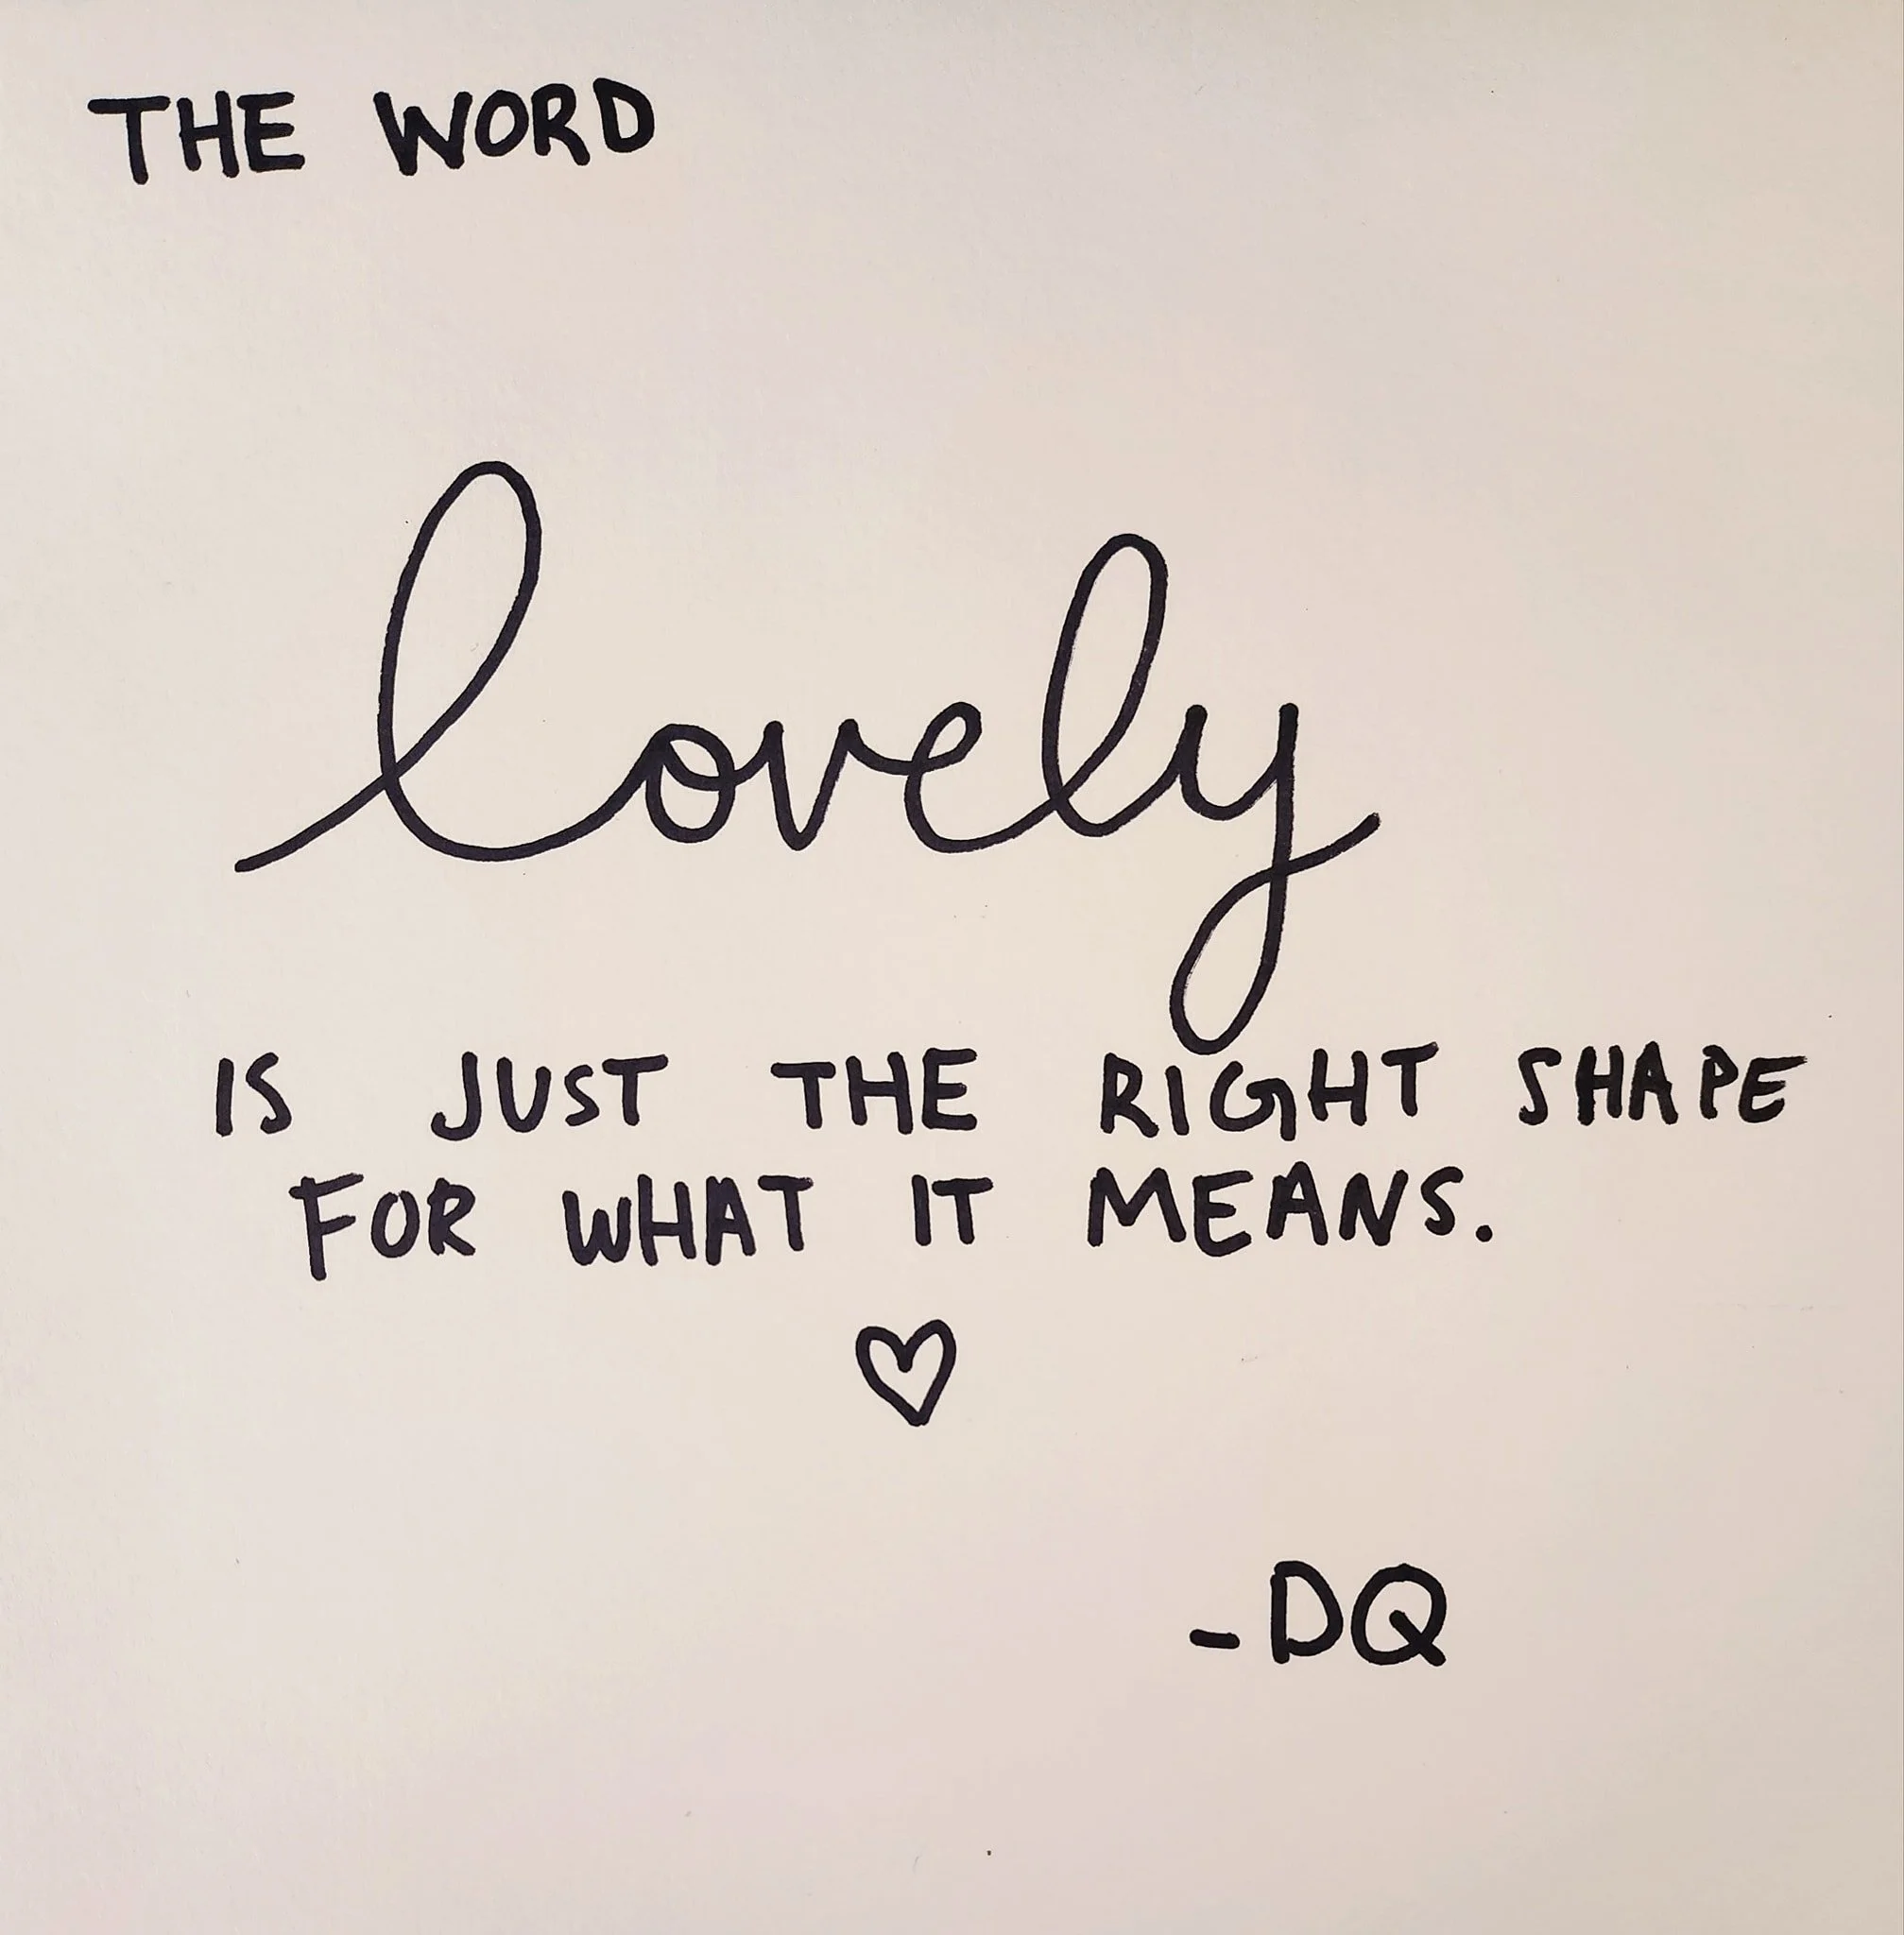 THE WORD
lovely
IS JUST THE RIGHT SHAPE
FOR WHAT IT MEANS.
-DQ